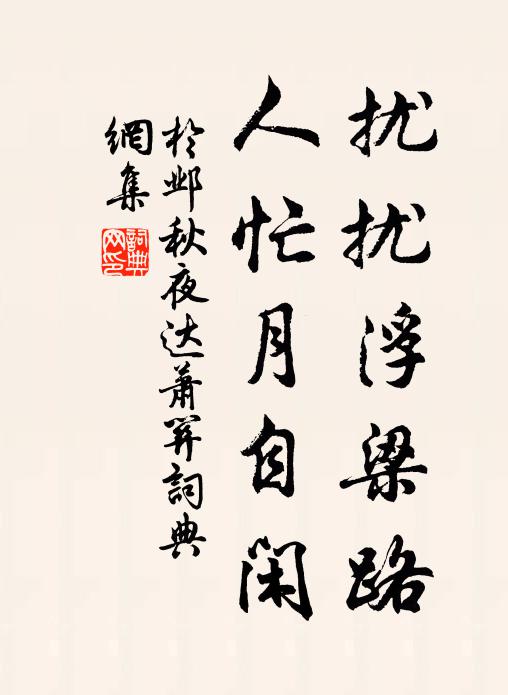 扰扰浮梁路
人忙月自闲
於邺秋夜达萧关詞典
網集
詞典网印